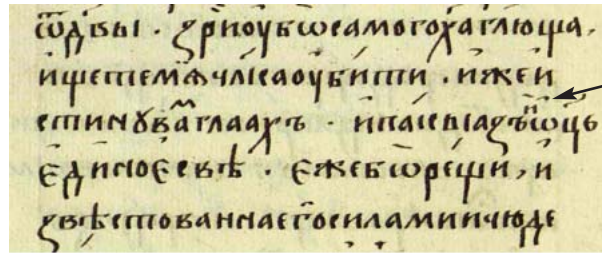 ѿдвы · зриоубѡсамогохаглюща,
ищетемѧчлкаоубити . ижеи
стинꙋвⷨаглаахъ · ипакыазъⁱиѡць
єдиноєсвѣ · єжебѡрещи, и
звѣстованнаєгосиламиичюде